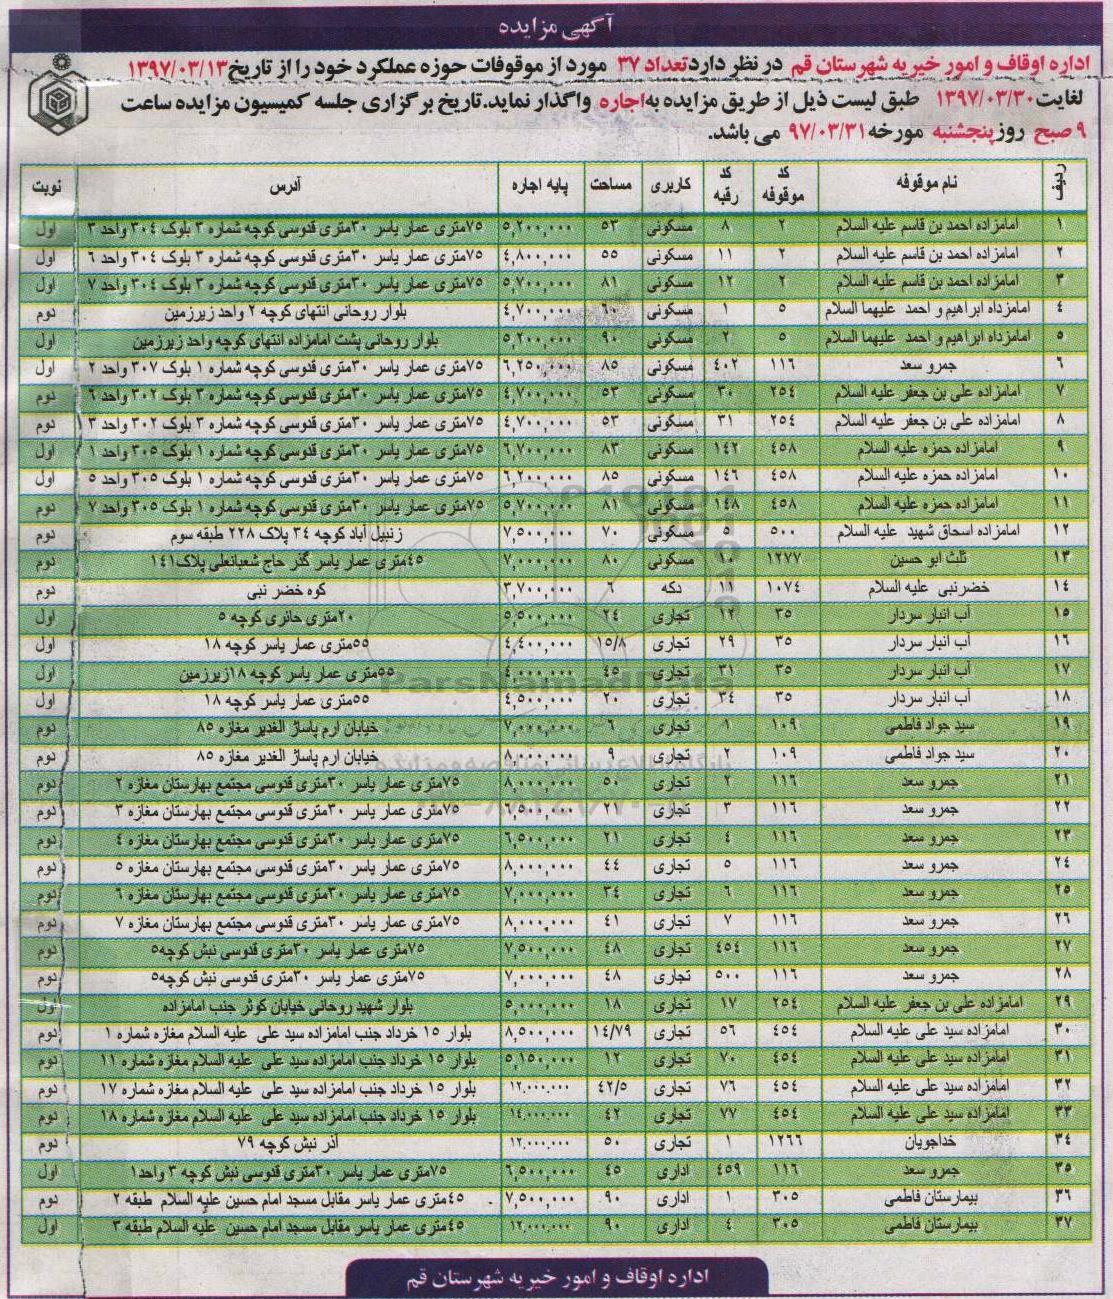 آگهی مزایده
اداره اوقاف و امور خیریه شهرستان قم در نظر دارد تعداد ۳۷ مورد از موقوفات حوزه عملکرد خود را از تاریخ ۱۳۹۷/۰۳/۱۳
لغایت ۱۳۹۷/۰۳/۳۰ طبق لیست ذیل از طریق مزایده به اجاره واگذار نماید. تاریخ برگزاری جلسه کمیسیون مزایده ساعت
۹ صبح روز پنجشنبه مورخه ۹۷/۰۳/۳۱ می باشد.
ردیف نام موقوفه کد موقوفه کد رقبه کاربری مساحت پایه اجاره آدرس نوبت
۱ امامزاده احمد بن قاسم علیه السلام ۲ ۸ مسکونی ۵۳ ۵,۲۰۰,۰۰۰ ۷۵متری عمار یاسر ۳۰متری قدوسی کوچه شماره ۳ بلوک ۳۰۴ واحد ۳ اول
۲ امامزاده احمد بن قاسم علیه السلام ۲ ۱۱ مسکونی ۵۵ ۴,۸۰۰,۰۰۰ ۷۵متری عمار یاسر ۳۰متری قدوسی کوچه شماره ۳ بلوک ۳۰۴ واحد ۶ اول
۳ امامزاده احمد بن قاسم علیه السلام ۲ ۱۲ مسکونی ۸۱ ۵,۷۰۰,۰۰۰ ۷۵متری عمار یاسر ۳۰متری قدوسی کوچه شماره ۳ بلوک ۳۰۴ واحد ۷ اول
۴ امامزداه ابراهیم و احمد علیهما السلام ۵ ۱ مسکونی ۶۰ ۴,۷۰۰,۰۰۰ بلوار روحانی انتهای کوچه ۲ واحد زیرزمین دوم
۵ امامزداه ابراهیم و احمد علیهما السلام ۵ ۲ مسکونی ۹۰ ۵,۲۰۰,۰۰۰ بلوار روحانی پشت امامزاده انتهای کوچه واحد زیرزمین اول
۶ جمرو سعد ۱۱۶ ۴۰۲ مسکونی ۸۵ ۶,۲۵۰,۰۰۰ ۷۵متری عمار یاسر ۳۰متری قدوسی کوچه شماره ۱ بلوک ۳۰۷ واحد ۲ اول
۷ امامزاده علی بن جعفر علیه السلام ۲۵۴ ۳۰ مسکونی ۵۳ ۴,۷۰۰,۰۰۰ ۷۵متری عمار یاسر ۳۰متری قدوسی کوچه شماره ۳ بلوک ۳۰۲ واحد ۶ دوم
۸ امامزاده علی بن جعفر علیه السلام ۲۵۴ ۳۱ مسکونی ۵۳ ۴,۷۰۰,۰۰۰ ۷۵متری عمار یاسر ۳۰متری قدوسی کوچه شماره ۳ بلوک ۳۰۲ واحد ۳ دوم
۹ امامزاده حمزه علیه السلام ۴۵۸ ۱۴۲ مسکونی ۸۳ ۶,۷۰۰,۰۰۰ ۷۵متری عمار یاسر ۳۰متری قدوسی کوچه شماره ۱ بلوک ۳۰۵ واحد ۱ اول
۱۰ امامزاده حمزه علیه السلام ۴۵۸ ۱۴۶ مسکونی ۸۵ ۶,۲۰۰,۰۰۰ ۷۵متری عمار یاسر ۳۰متری قدوسی کوچه شماره ۱ بلوک ۳۰۵ واحد ۵ اول
۱۱ امامزاده حمزه علیه السلام ۴۵۸ ۱۴۸ مسکونی ۸۱ ۵,۷۰۰,۰۰۰ ۷۵متری عمار یاسر ۳۰متری قدوسی کوچه شماره ۱ بلوک ۳۰۵ واحد ۷ دوم
۱۲ امامزاده اسحاق شهید علیه السلام ۵۰۰ ۵ مسکونی ۷۰ ۷,۵۰۰,۰۰۰ زنبیل آباد کوچه ۳۴ پلاک ۲۲۸ طبقه سوم دوم
۱۳ ثلث ابو حسین ۱۲۷۷ ۱۰ مسکونی ۸۰ ۷,۰۰۰,۰۰۰ ۴۵متری عمار یاسر گذر حاج شعبانعلی پلاک۱۴۱ دوم
۱۴ خضرنبی علیه السلام ۱۰۷۴ ۱۱ دکه ۶ ۳,۷۰۰,۰۰۰ کوه خضر نبی دوم
۱۵ آب انبار سردار ۳۵ ۱۲ تجاری ۲۴ ۵,۵۰۰,۰۰۰ ۲۰متری حائری کوچه ۵ اول
۱۶ آب انبار سردار ۳۵ ۲۹ تجاری ۱۵/۸ ۴,۴۰۰,۰۰۰ ۵۵متری عمار یاسر کوچه ۱۸ اول
۱۷ آب انبار سردار ۳۵ ۳۱ تجاری ۴۵ ۴,۰۰۰,۰۰۰ ۵۵متری عمار یاسر کوچه ۱۸زیرزمین اول
۱۸ آب انبار سردار ۳۵ ۳۴ تجاری ۲۰ ۴,۵۰۰,۰۰۰ ۵۵متری عمار یاسر کوچه ۱۸ اول
۱۹ سید جواد فاطمی ۱۰۹ ۱ تجاری ۶ ۷,۰۰۰,۰۰۰ خیابان ارم پاساژ الغدیر مغازه ۸۵ دوم
۲۰ سید جواد فاطمی ۱۰۹ ۲ تجاری ۹ ۸,۰۰۰,۰۰۰ خیابان ارم پاساژ الغدیر مغازه ۸۵ دوم
۲۱ جمرو سعد ۱۱۶ ۲ تجاری ۵۰ ۸,۰۰۰,۰۰۰ ۷۵متری عمار یاسر ۳۰متری قدوسی مجتمع بهارستان مغازه ۲ دوم
۲۲ جمرو سعد ۱۱۶ ۳ تجاری ۲۱ ۶,۵۰۰,۰۰۰ ۷۵متری عمار یاسر ۳۰متری قدوسی مجتمع بهارستان مغازه ۳ دوم
۲۳ جمرو سعد ۱۱۶ ۴ تجاری ۲۱ ۶,۵۰۰,۰۰۰ ۷۵متری عمار یاسر ۳۰متری قدوسی مجتمع بهارستان مغازه ۴ دوم
۲۴ جمرو سعد ۱۱۶ ۵ تجاری ۴۴ ۸,۰۰۰,۰۰۰ ۷۵متری عمار یاسر ۳۰متری قدوسی مجتمع بهارستان مغازه ۵ دوم
۲۵ جمرو سعد ۱۱۶ ۶ تجاری ۳۴ ۷,۰۰۰,۰۰۰ ۷۵متری عمار یاسر ۳۰متری قدوسی مجتمع بهارستان مغازه ۶ دوم
۲۶ جمرو سعد ۱۱۶ ۷ تجاری ۴۱ ۸,۰۰۰,۰۰۰ ۷۵متری عمار یاسر ۳۰متری قدوسی مجتمع بهارستان مغازه ۷ دوم
۲۷ جمرو سعد ۱۱۶ ۴۵۴ تجاری ۴۸ ۷,۵۰۰,۰۰۰ ۷۵متری عمار یاسر ۳۰متری قدوسی نبش کوچه۵ دوم
۲۸ جمرو سعد ۱۱۶ ۵۰۰ تجاری ۴۸ ۷,۰۰۰,۰۰۰ ۷۵متری عمار یاسر ۳۰متری قدوسی نبش کوچه۵ دوم
۲۹ امامزاده علی بن جعفر علیه السلام ۲۵۴ ۱۷ تجاری ۱۸ ۵,۰۰۰,۰۰۰ بلوار شهید روحانی خیابان کوثر جنب امامزاده اول
۳۰ امامزاده سید علی علیه السلام ۴۵۴ ۵۶ تجاری ۱۴/۷۹ ۸,۵۰۰,۰۰۰ بلوار ۱۵ خرداد جنب امامزاده سید علی علیه السلام مغازه شماره ۱ دوم
۳۱ امامزاده سید علی علیه السلام ۴۵۴ ۷۰ تجاری ۱۲ ۵,۱۵۰,۰۰۰ بلوار ۱۵ خرداد جنب امامزاده سید علی علیه السلام مغازه شماره ۱۱ دوم
۳۲ امامزاده سید علی علیه السلام ۴۵۴ ۷۶ تجاری ۴۲/۵ ۱۲,۰۰۰,۰۰۰ بلوار ۱۵ خرداد جنب امامزاده سید علی علیه السلام مغازه شماره ۱۷ دوم
۳۳ امامزاده سید علی علیه السلام ۴۵۴ ۷۷ تجاری ۴۲ ۱۴,۰۰۰,۰۰۰ بلوار ۱۵ خرداد جنب امامزاده سید علی علیه السلام مغازه شماره ۱۸ دوم
۳۴ خداجویان ۱۲۶۶ ۱ تجاری ۵۰ ۱۲,۰۰۰,۰۰۰ آذر نبش کوچه ۷۹ دوم
۳۵ جمرو سعد ۱۱۶ ۴۵۹ اداری ۴۵ ۶,۵۰۰,۰۰۰ ۷۵متری عمار یاسر ۳۰متری قدوسی نبش کوچه ۳ واحد۱ اول
۳۶ بیمارستان فاطمی ۳۰۵ ۱ اداری ۹۰ ۷,۵۰۰,۰۰۰ ۴۵متری عمار یاسر مقابل مسجد امام حسین علیه السلام طبقه ۲ دوم
۳۷ بیمارستان فاطمی ۳۰۵ ۴ اداری ۹۰ ۱۲,۰۰۰,۰۰۰ ۴۵متری عمار یاسر مقابل مسجد امام حسین علیه السلام طبقه ۳ اول
اداره اوقاف و امور خیریه شهرستان قم
ParsNamadData